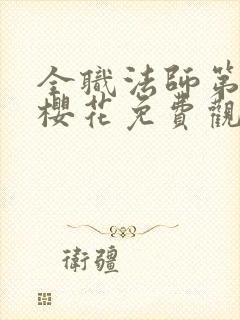 全職法師第
櫻花免費觀
衛疆